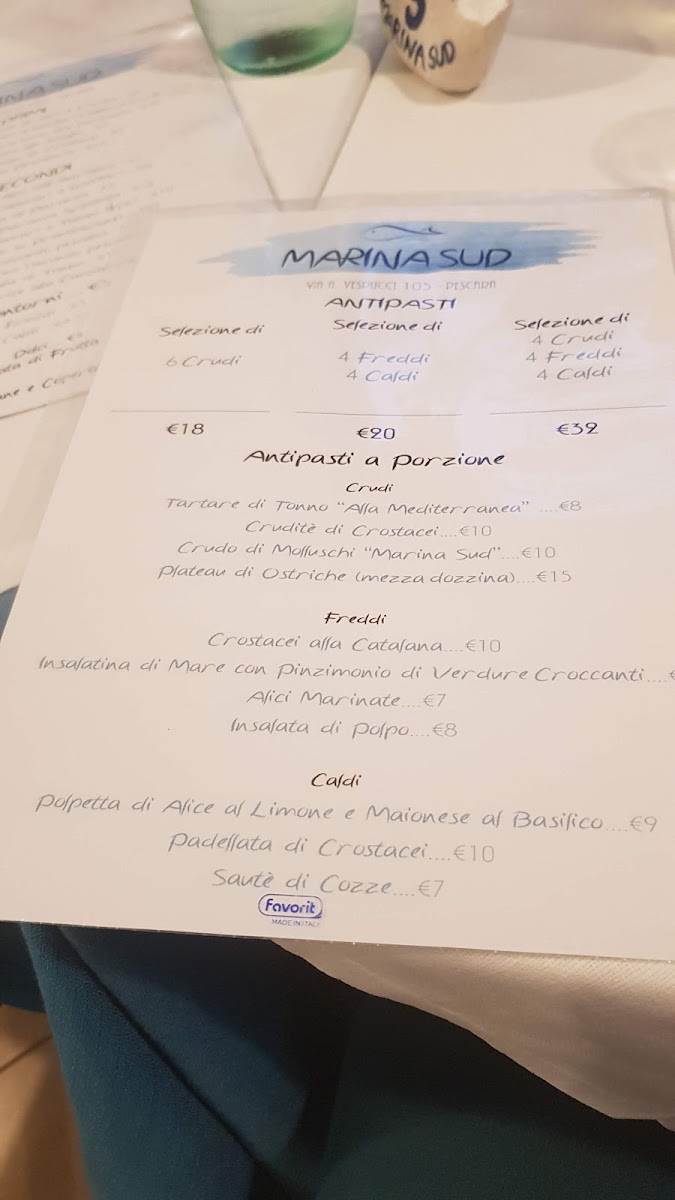 MARINA SUD
INA SUD
ECONDI
ntorni
Dolci
ta di Frutta
ne e Coper
MARINA SUD
VIA A. VESPUCCI 105 - PESCARA
ANTIPASTI
Selezione di
6 Crudi
€18
Selezione di
4 Freddi
4 Caldi
€20
Selezione di
4 Crudi
4 Freddi
4 Caldi
€32
Antipasti a Porzione
Crudi
Tartare di Tonno "Alla Mediterranea" ....€8
Cruditè di Crostacei....€10
Crudo di Molluschi "Marina Sud"....€10
Plateau di Ostriche (mezza dozzina)....€15
Freddi
Crostacei alla Catalana....€10
Insalatina di Mare con Pinzimonio di Verdure Croccanti....€
Alici Marinate....€7
Insalata di Polpo....€8
Caldi
Polpetta di Alice al Limone e Maionese al Basilico....€9
Padellata di Crostacei....€10
Sautè di Cozze....€7
Favorit
MADE IN ITALY